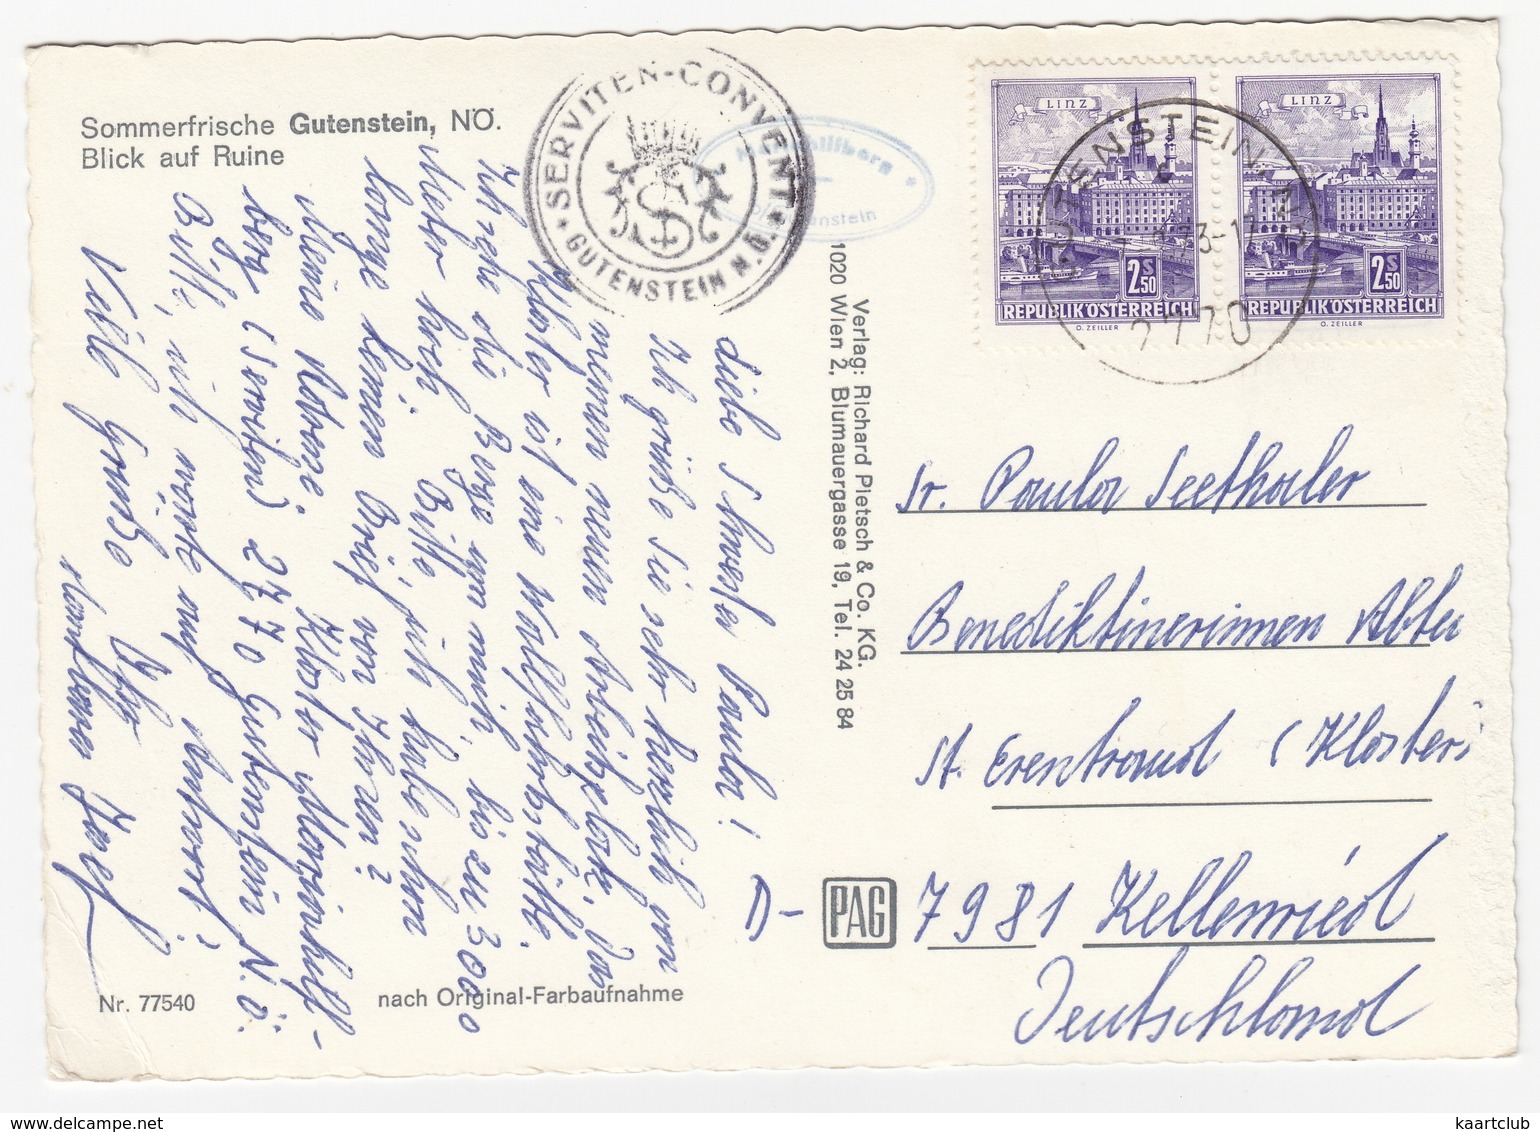 Sommerfrische Gutenstein, NÖ.
Blick auf Ruine
* SERVITEN-CONVENT *
GUTENSTEIN N.Ö.
LINZ
2 S 50
REPUBLIK ÖSTERREICH
O. ZEILLER
LINZ
2 S 50
REPUBLIK ÖSTERREICH
O. ZEILLER
GUTENSTEIN, N
73-17
2770
Liebe Schwester Paula!
Ich grüße Sie sehr herzlich von
meinem neuen Arbeitsplatz. Das
Kloster ist eine Wallfahrtsstätte.
Ringsum die Berge um mich, bis zu 3000
Meter hoch. Bitte, ich habe schon
lange keinen Brief von Ihnen?
Meine Adresse: Kloster Mariahilf-
berg (Serviten) 2770 Gutenstein N.Ö.
Bitte, ich warte auf Antwort?
Viele Grüße Ihr
Josef
Verlag: Richard Pietsch & Co. KG.
1020 Wien 2, Blumauergasse 19, Tel. 24 25 84
Sr. Paula Seethaler
Benediktinerinnen Abtei
St. Erentraud (Kloster)
D- PAG 7981 Kellenried
Deutschland
Nr. 77540
nach Original-Farbaufnahme
kaartclub
www.delcampe.net